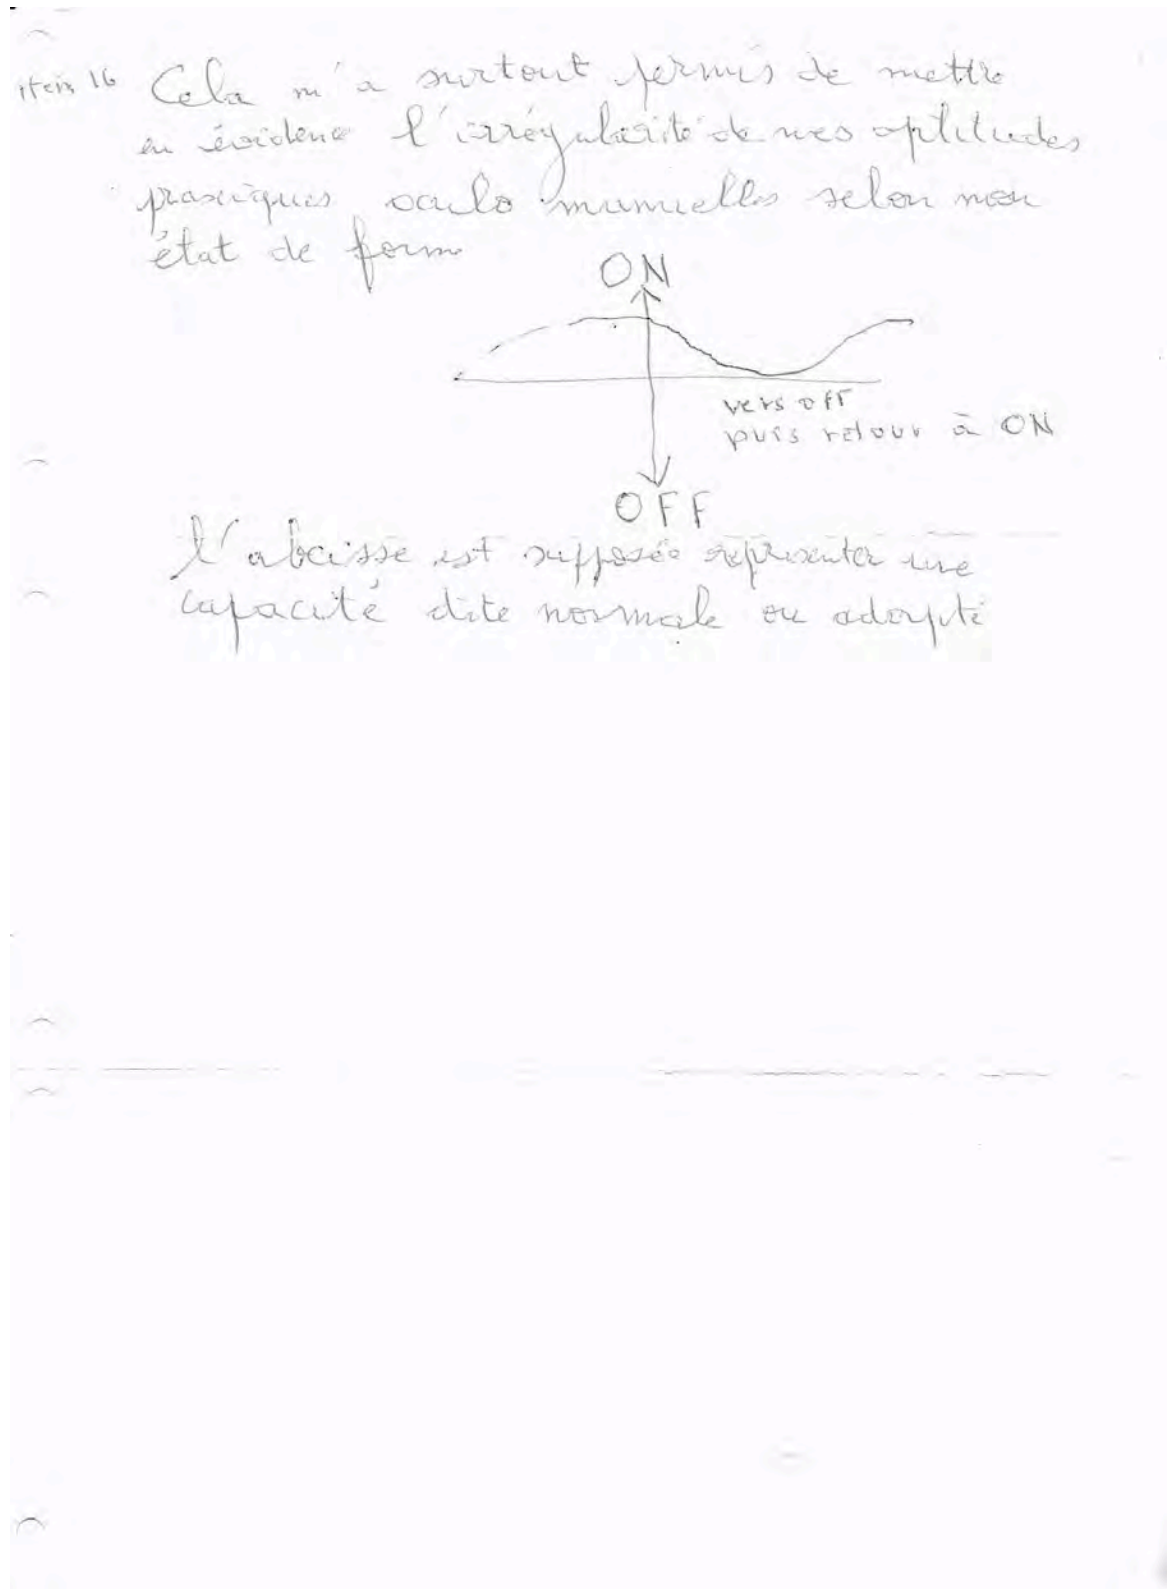 item 16 Cela m'a surtout permis de mettre
en évidence l'irrégularité de mes aptitudes
praxiques oculo manuelles selon mon
état de forme
ON
vers off
puis retour à ON
OFF
l'abcisse est supposée représenter une
capacité dite normale ou adapté